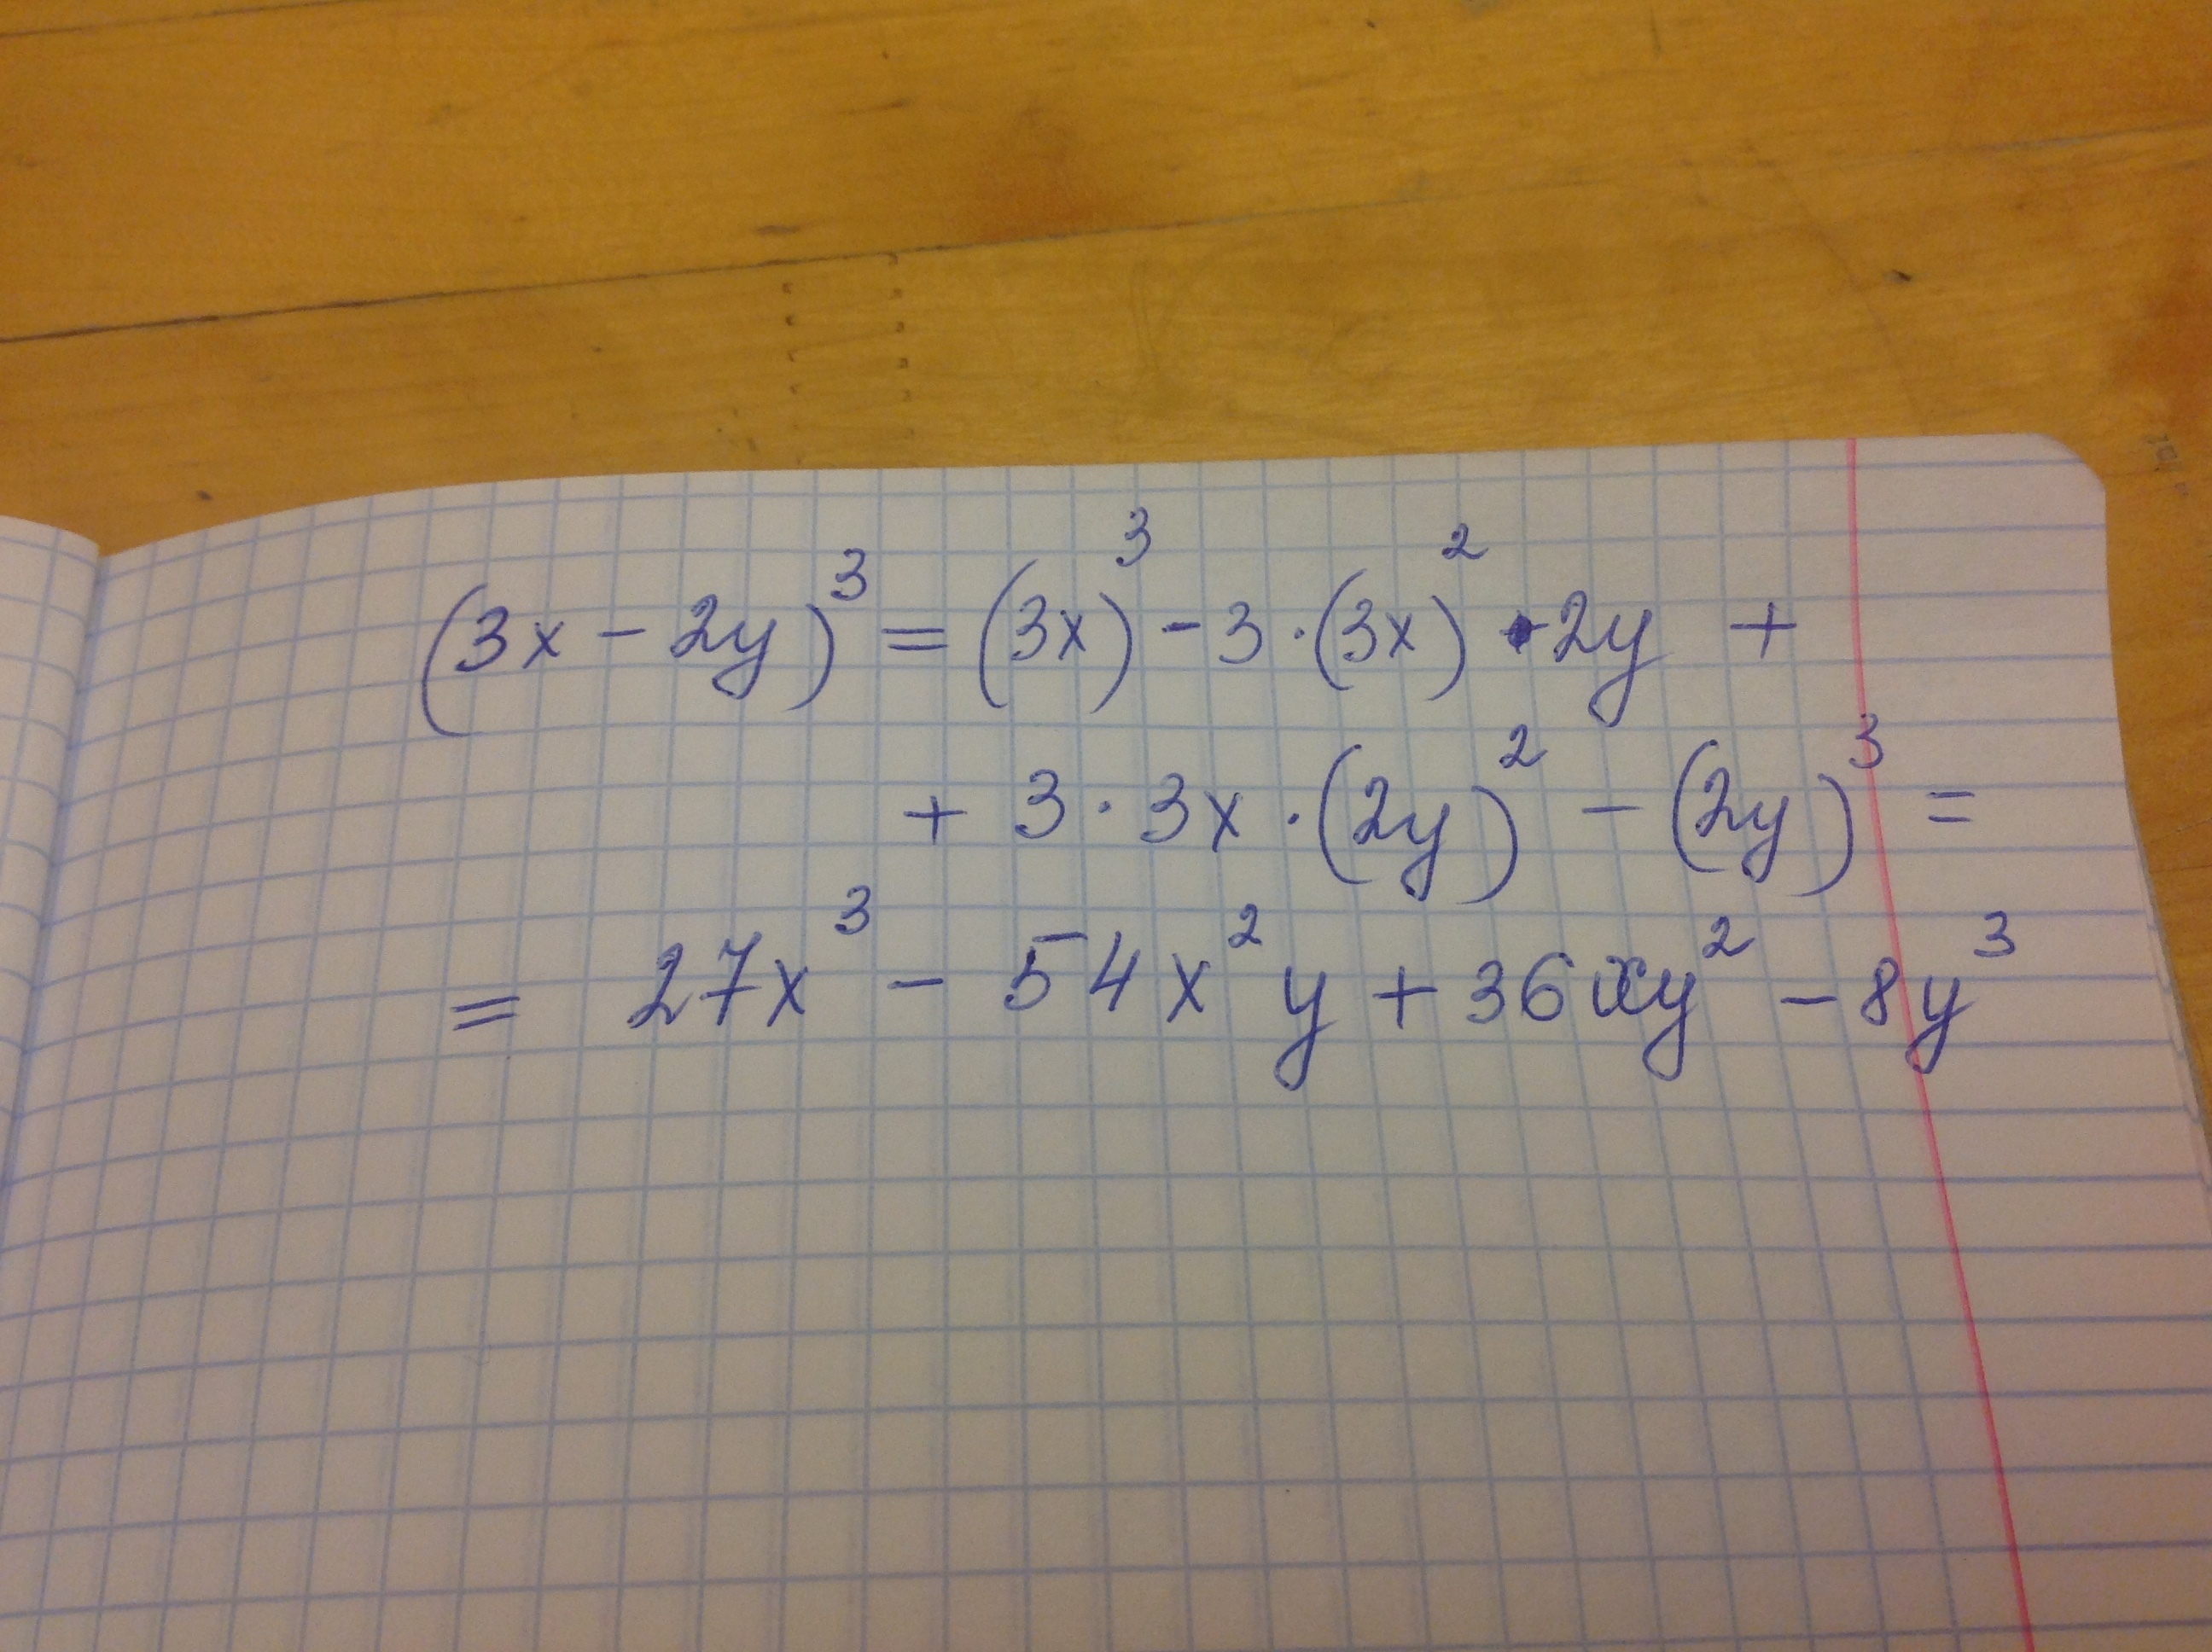 (3x - 2y)³ = (3x)³ - 3 · (3x)² · 2y +
+ 3 · 3x · (2y)² - (2y)³ =
= 27x³ - 54x²y + 36xy² - 8y³